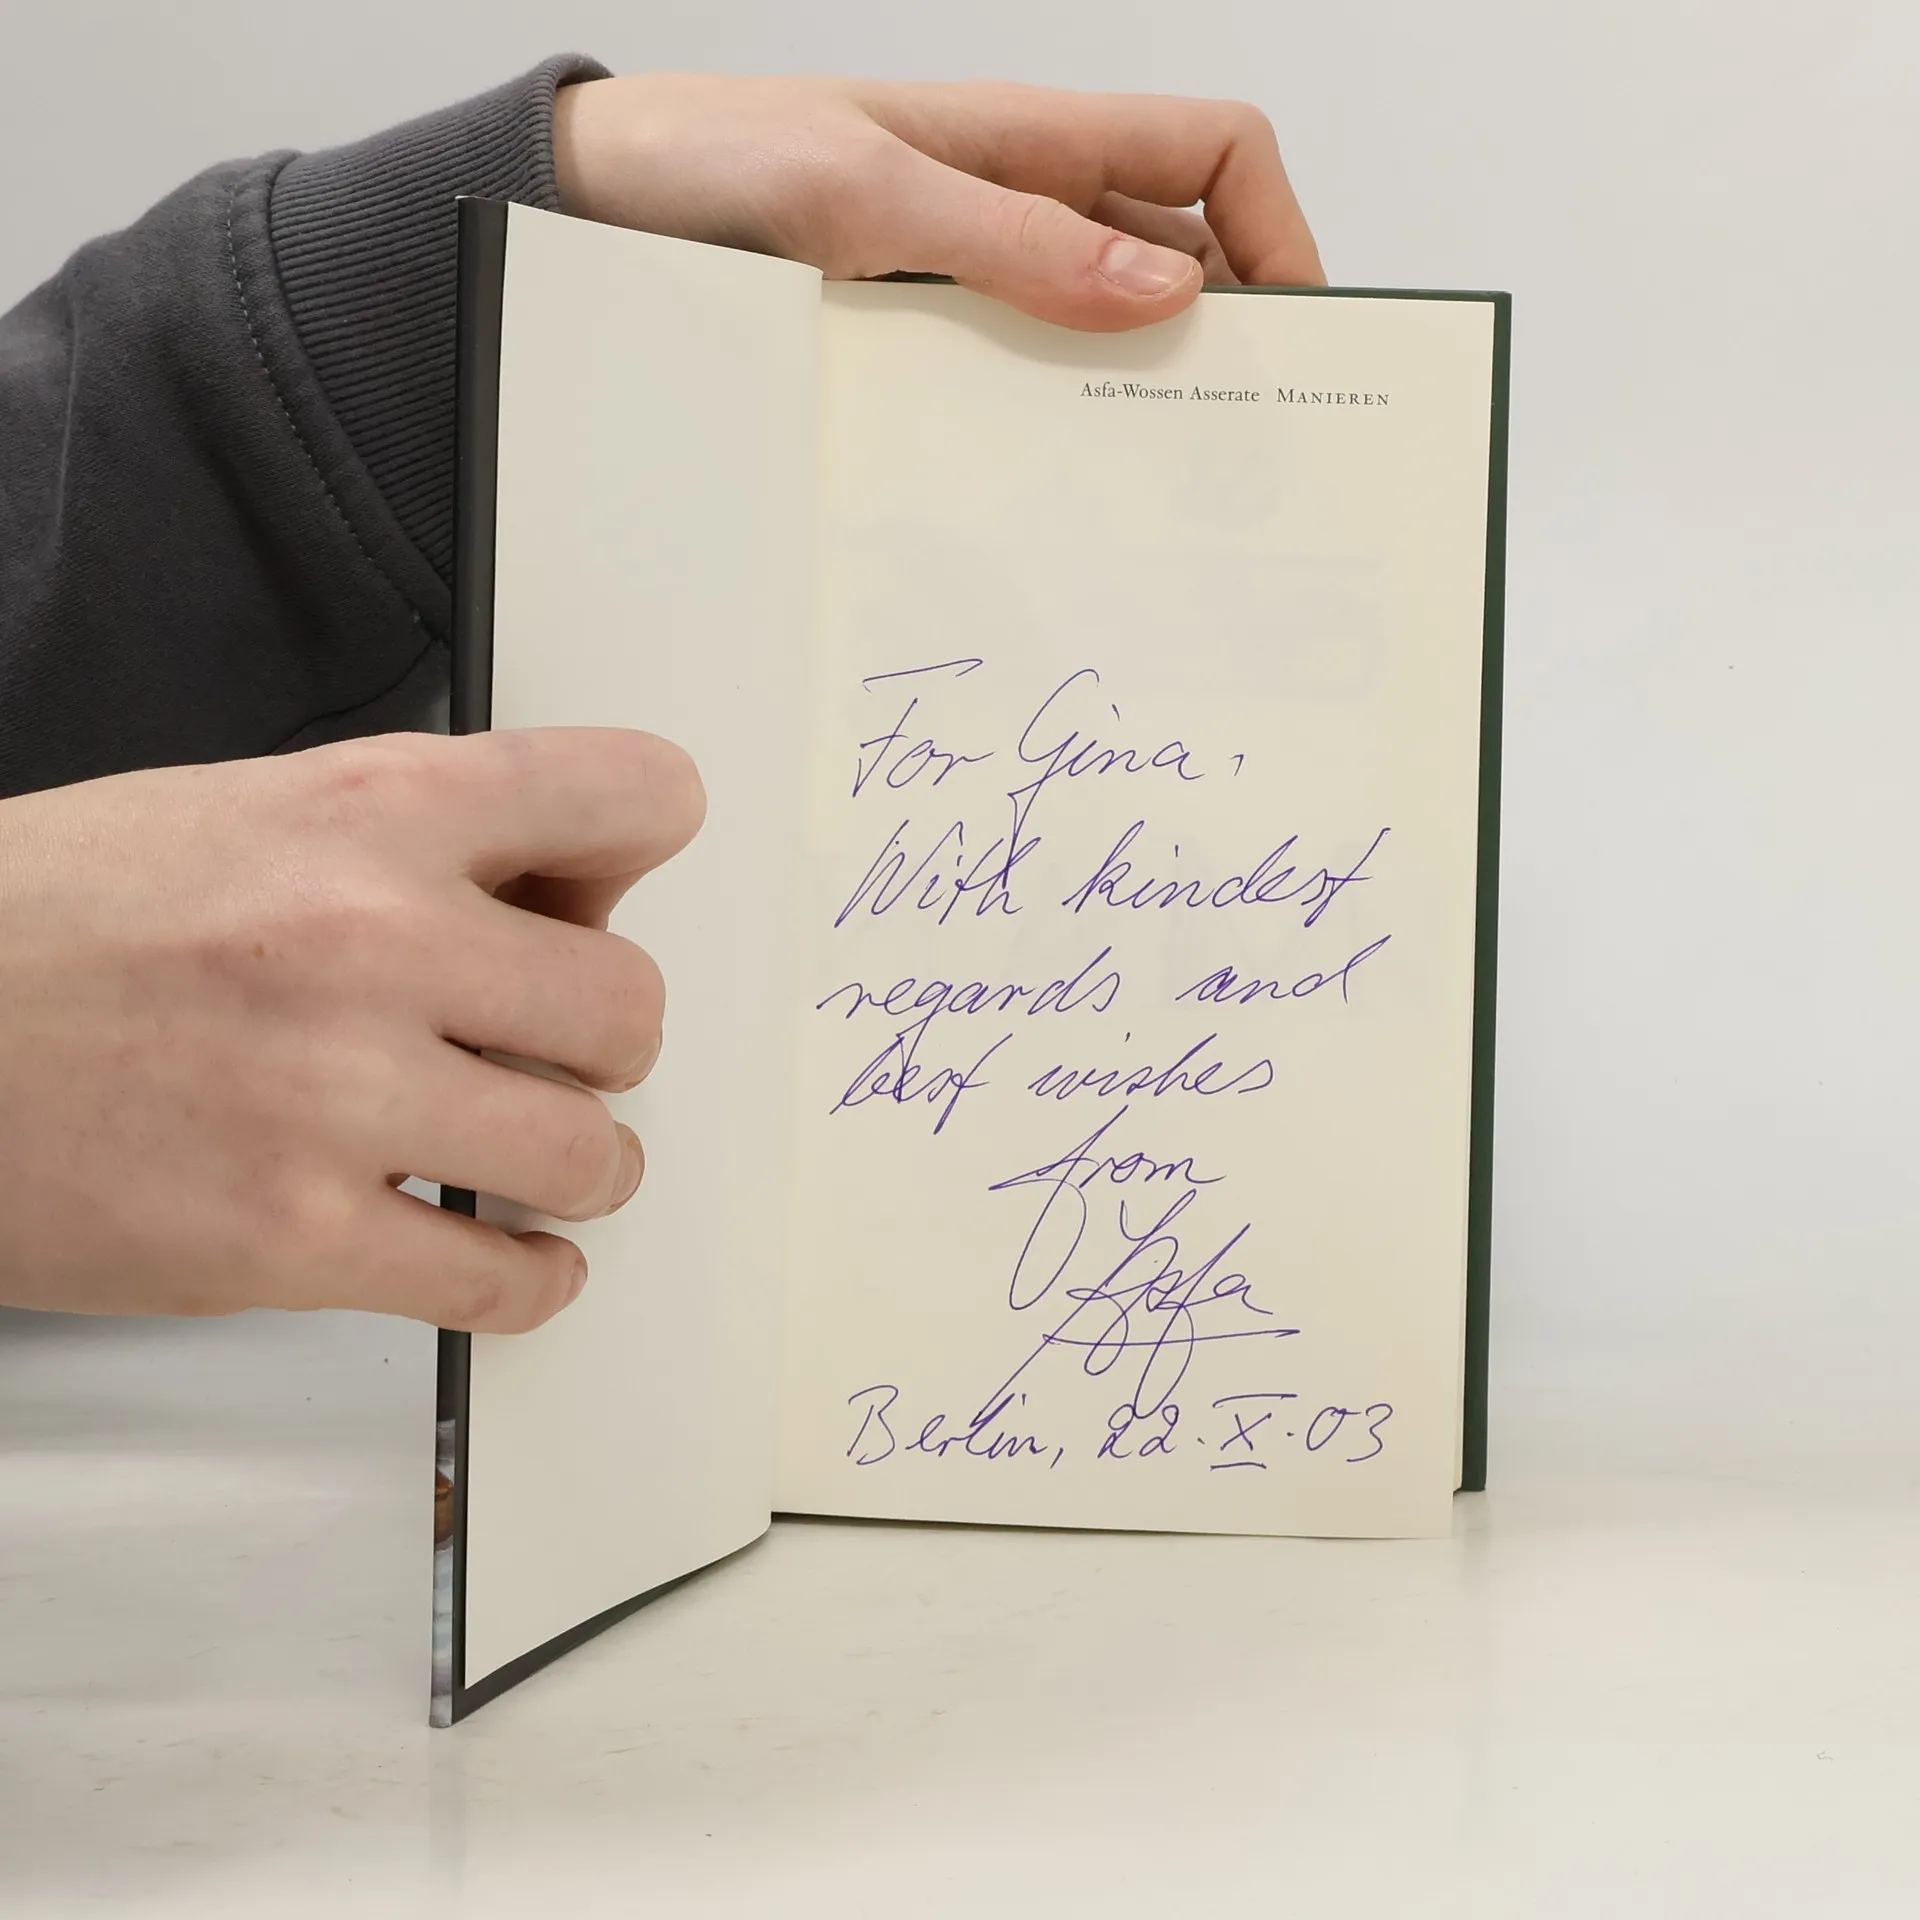 Asfa-Wossen Asserate MANIEREN
For Gina,
With kindest
regards and
best wishes
from
Asfa
Berlin, 22.X.03